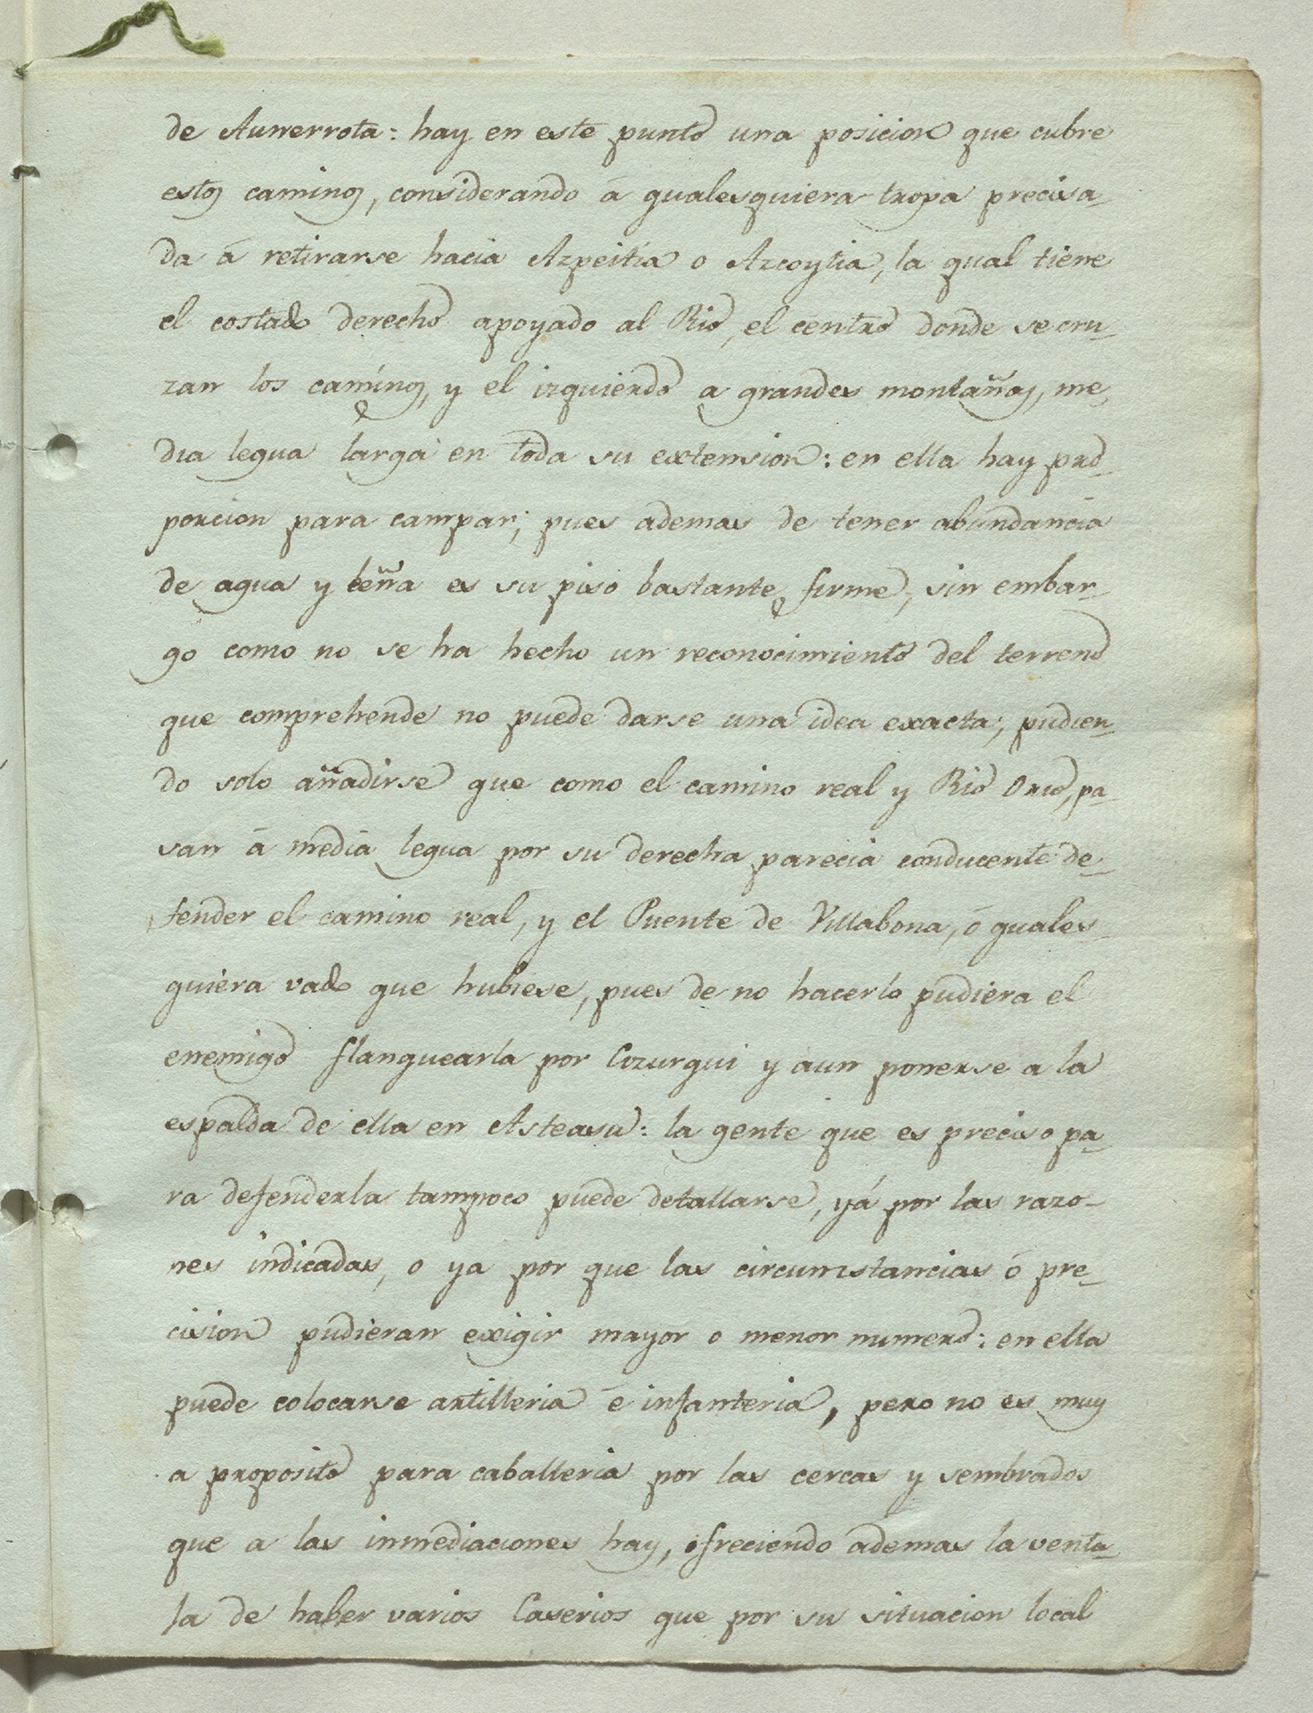 de Aunerrota: hay en este punto una posicion que cubre
estos caminos, considerando á qualesquiera tropa precisa-
da á retirarse hacia Azpeitia o Azcoytia, la qual tiene
el costado derecho apoyado al Rio, el centro donde se cru-
zan los caminos, y el izquierdo a grandes montañas, me-
dia legua larga en toda su extension: en ella hay pro-
porcion para campar; pues ademas de tener abundancia
de agua y leña es su piso bastante firme, sin embar-
go como no se ha hecho un reconocimiento del terreno
que comprehende no puede darse una idea exacta; pudien-
do solo añadirse que como el camino real y Rio Orio, pa-
san á media legua por su derecha parecia conducente de-
fender el camino real, y el Puente de Villabona, ó quales-
quiera vado que hubiese, pues de no hacerlo pudiera el
enemigo flanquearla por Cozurqui y aun ponerse a la
espalda de ella en Asteasu: la gente que es preciso pa-
ra defenderla tampoco puede detallarse, yá por las razo-
nes indicadas, o ya por que las circunstancias ó pre-
cision pudieran exigir mayor o menor numero: en ella
puede colocarse artilleria é infanteria, pero no es muy
a proposito para caballeria por las cercas y sembrados
que a las inmediaciones hay, ofreciendo ademas la venta-
ja de haber varios Caserios que por su situacion local